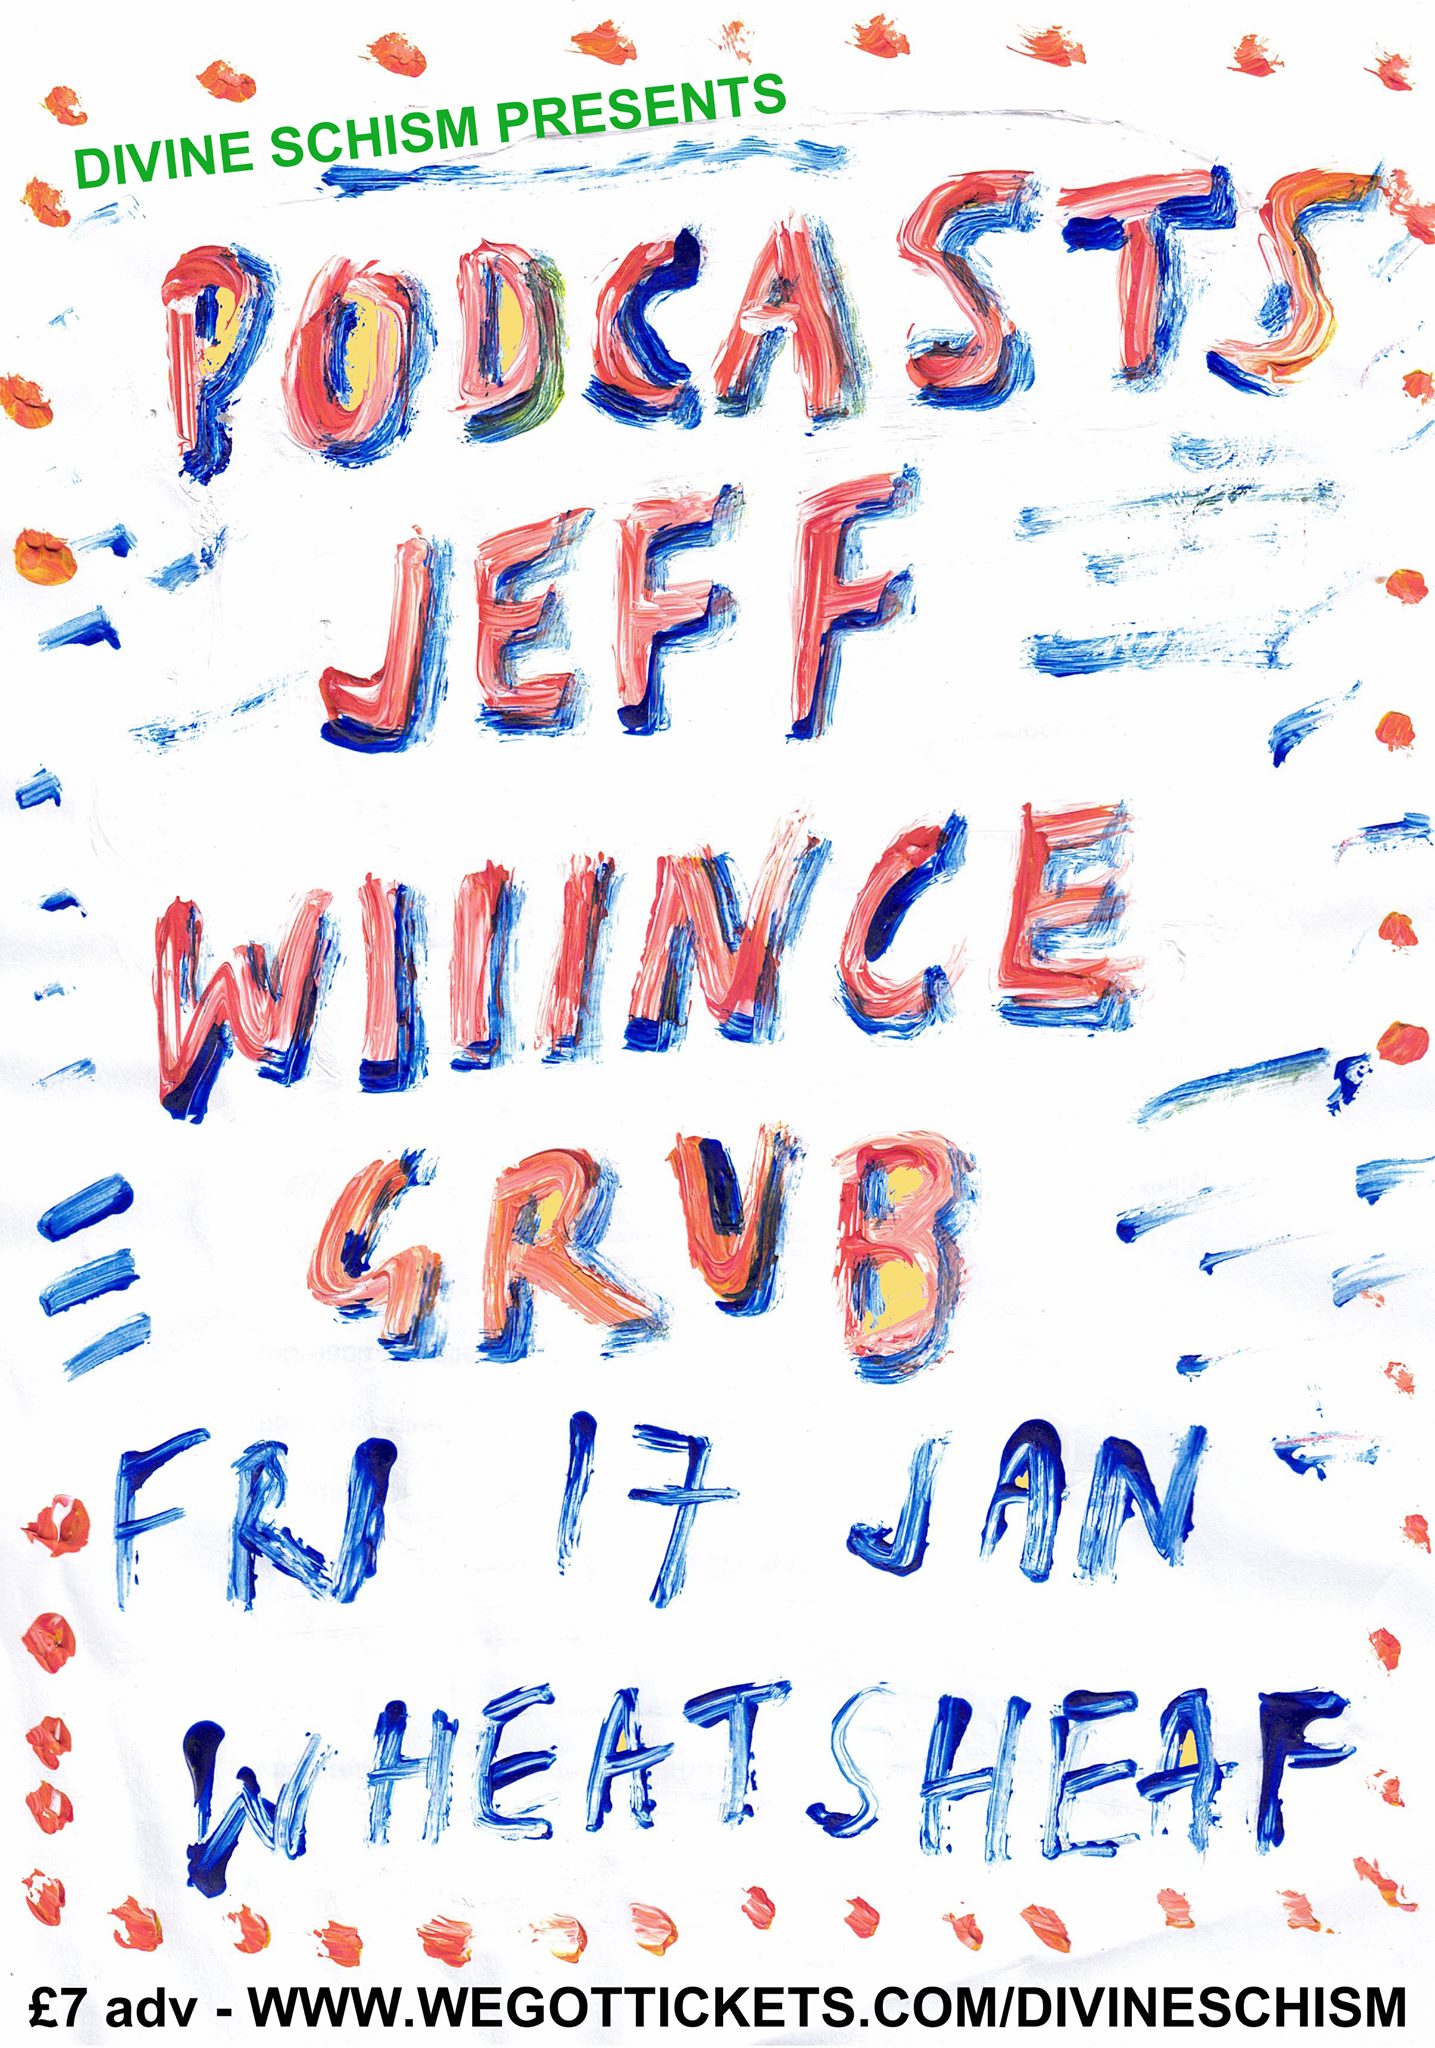 DIVINE SCHISM PRESENTS
PODCASTS
JEFF
WIIINCE
GRUB
FRI 17 JAN
WHEATSHEAF
£7 adv - WWW.WEGOTTICKETS.COM/DIVINESCHISM